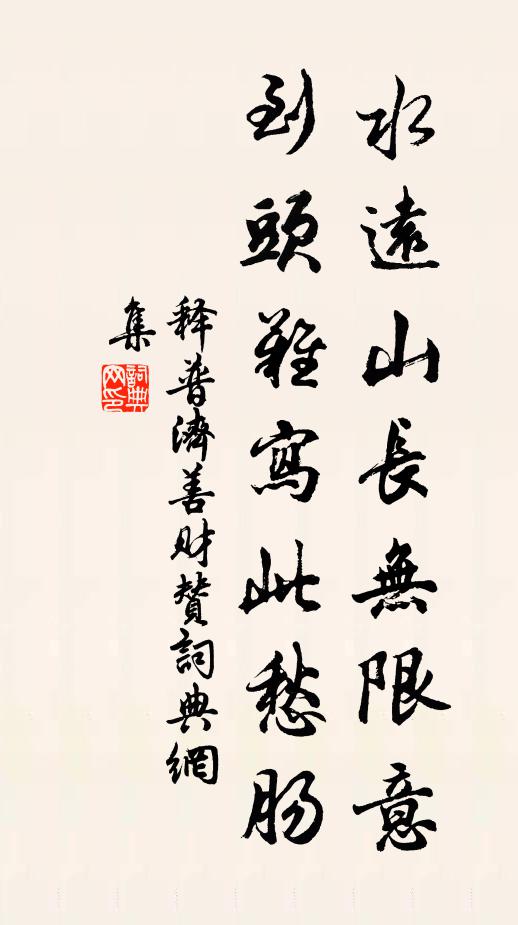 水遠山長無限意
到頭難寫此愁肠
释普濟善财贊詞典網
集
詞典
网印